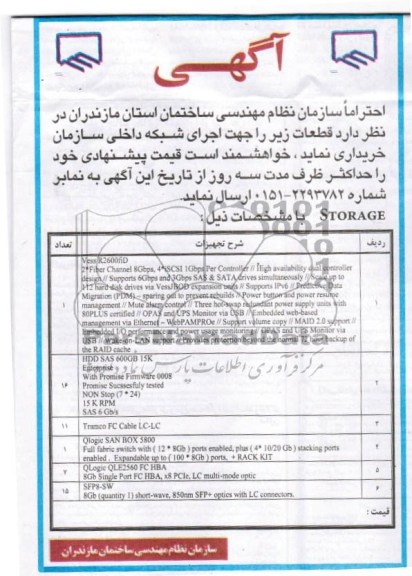 آگهی
احتراماً سازمان نظام مهندسی ساختمان استان مازندران در
نظر دارد قطعات زیر را جهت اجرای شبکه داخلی سازمان
خریداری نماید ، خواهشمند است قیمت پیشنهادی خود
را حداکثر ظرف مدت سه روز از تاریخ این آگهی به نمابر
شماره ۲۲۹۳۷۸۲-۰۱۵۱ ارسال نماید.
STORAGE با مشخصات ذیل :
ردیف شرح تجهیزات تعداد
۱ Vess R2600fiD ۱
2*Fiber Channel 8Gbps, 4*iSCSI 1Gbps Per Controller // High availability dual controller
design // Supports 6Gbps and 3Gbps SAS & SATA drives simultaneously // Scale up to
112 hard disk drives via VessJBOD expansion units // Supports IPv6 // Predictive Data
Migration (PDM) – sparing out to prevent rebuilds // Power button and power resume
management // Mute alarm control // Three hot-swap redundant power supply units with
80PLUS certified // OPAS and/UPS Monitor via USB // Embedded web-based
management via Ethernet – WebPAMPROe // Support volume copy // MAID 2.0 support //
Embedded I/O performance and power usage monitoring // OPAS and UPS Monitor via
USB // Wake-on-LAN support // Provides protection backup of
the RAID cache
۲ HDD SAS 600GB 15K ۱۶
Enterprise
With Promise Firmware 0008
Promise Sucssesfuly tested
NON Stop (7 * 24)
15 K RPM
SAS 6 Gb/s
۳ Tranco FC Cable LC-LC ۱۱
۴ Qlogic SAN BOX 5800 ۱
Full fabric switch with ( 12 * 8Gb ) ports enabled, plus ( 4* 10/20 Gb ) stacking ports
enabled . Expandable up to ( 100 * 8Gb ) ports, + RACK KIT
۵ QLogic QLE2560 FC HBA ۲
8Gb Single Port FC HBA, x8 PCIe, LC multi-mode optic
۶ SFP8-SW ۱۵
8Gb (quantity 1) short-wave, 850nm SFP+ optics with LC connectors.
قیمت :
سازمان نظام مهندسی ساختمان مازندران
مرکز فرآوری اطلاعات پارس نماد داده